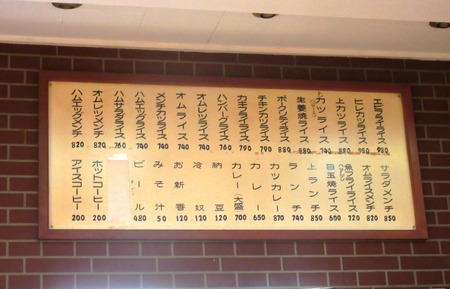 エビフライライス 980
ヒレカツライス 950
上カツライス 880
カツライス
生姜焼ライス 880
ポークソテーライス 880
チキンカツライス 790
カキフライライス 790
ハンバーグライス 760
オムレツライス 740
オムライス 740
メンチカツライス 740
ハムエッグライス 740
ハムサラダライス 760
オムレツメンチ 820
ハムエッグメンチ 820
サラダメンチ 850
オムライスメンチ 820
魚フライライス 720
目玉焼ライス 690
上ランチ 850
ランチ 740
カツカレー 870
カレー 650
カレー大盛 700
納豆 120
冷奴 120
お新香 120
みそ汁 50
ビール 480
ホットコーヒー 200
アイスコーヒー 200